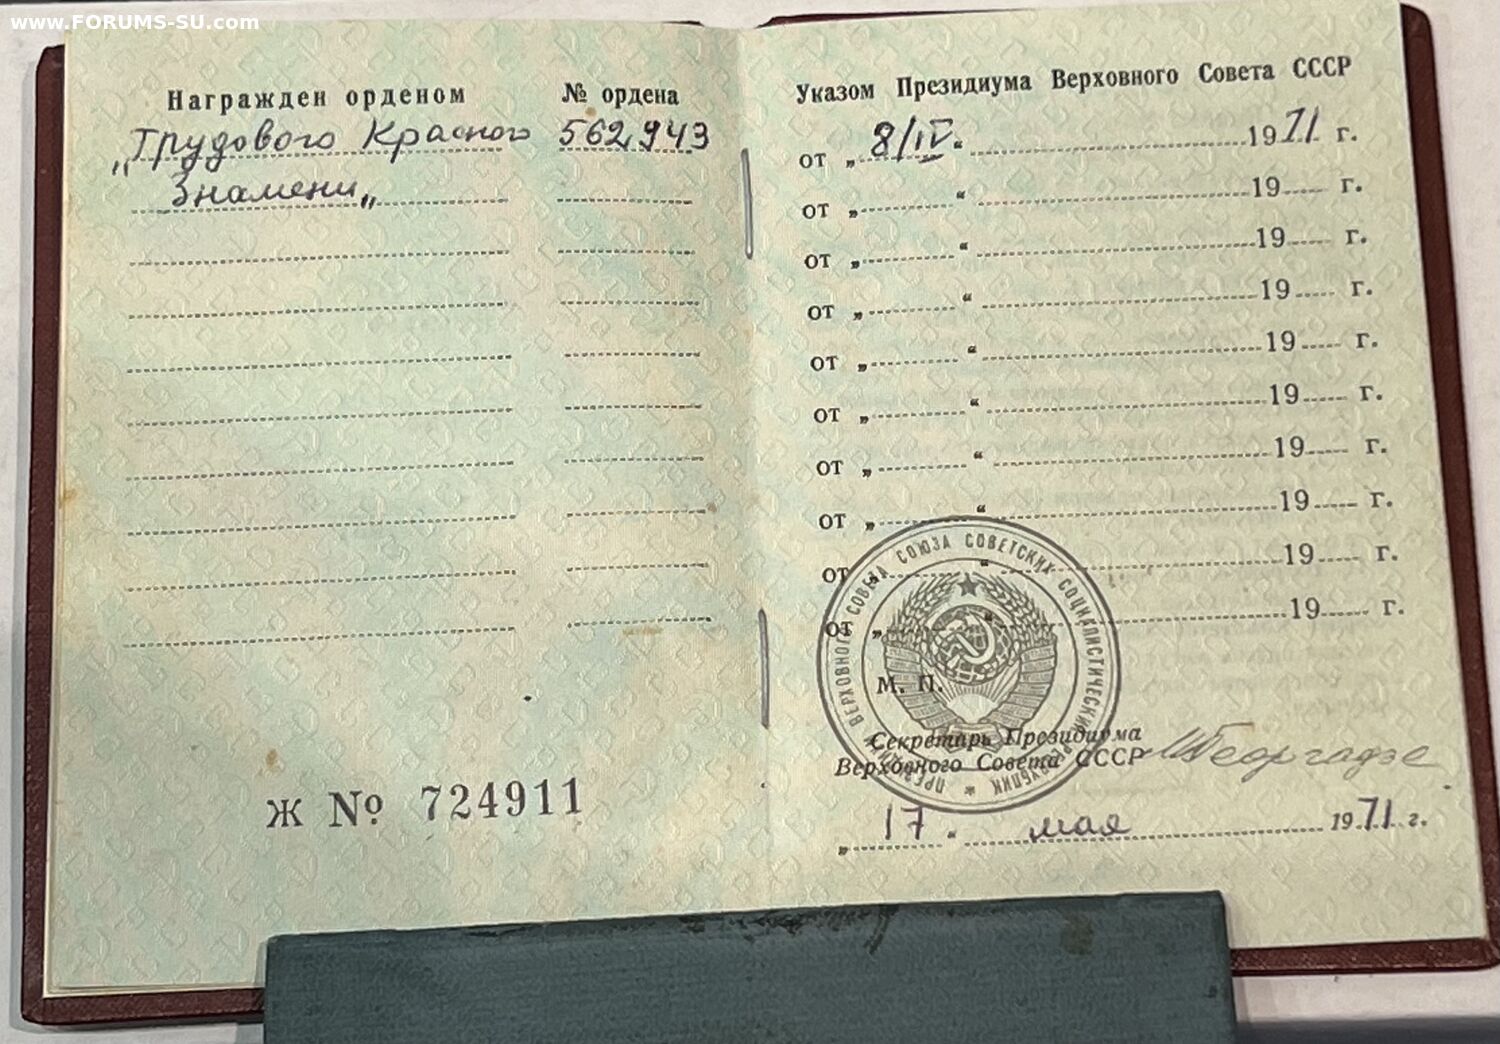 www.FORUMS-SU.com
Награжден орденом № ордена
„Трудового Красного 562943
Знамени„
Указом Президиума Верховного Совета СССР
от „8/IV“ 1971 г.
от „ “ 19 г.
от „ “ 19 г.
от „ “ 19 г.
от „ “ 19 г.
от „ “ 19 г.
от „ “ 19 г.
от „ “ 19 г.
от „ “ 19 г.
от „ “ 19 г.
ПРЕЗИДИУМ ВЕРХОВНОГО СОВЕТА СОЮЗА СОВЕТСКИХ СОЦИАЛИСТИЧЕСКИХ РЕСПУБЛИК
М. П.
Секретарь Президиума
Верховного Совета СССР МГеоргадзе
„17“ мая 1971 г.
Ж № 724911